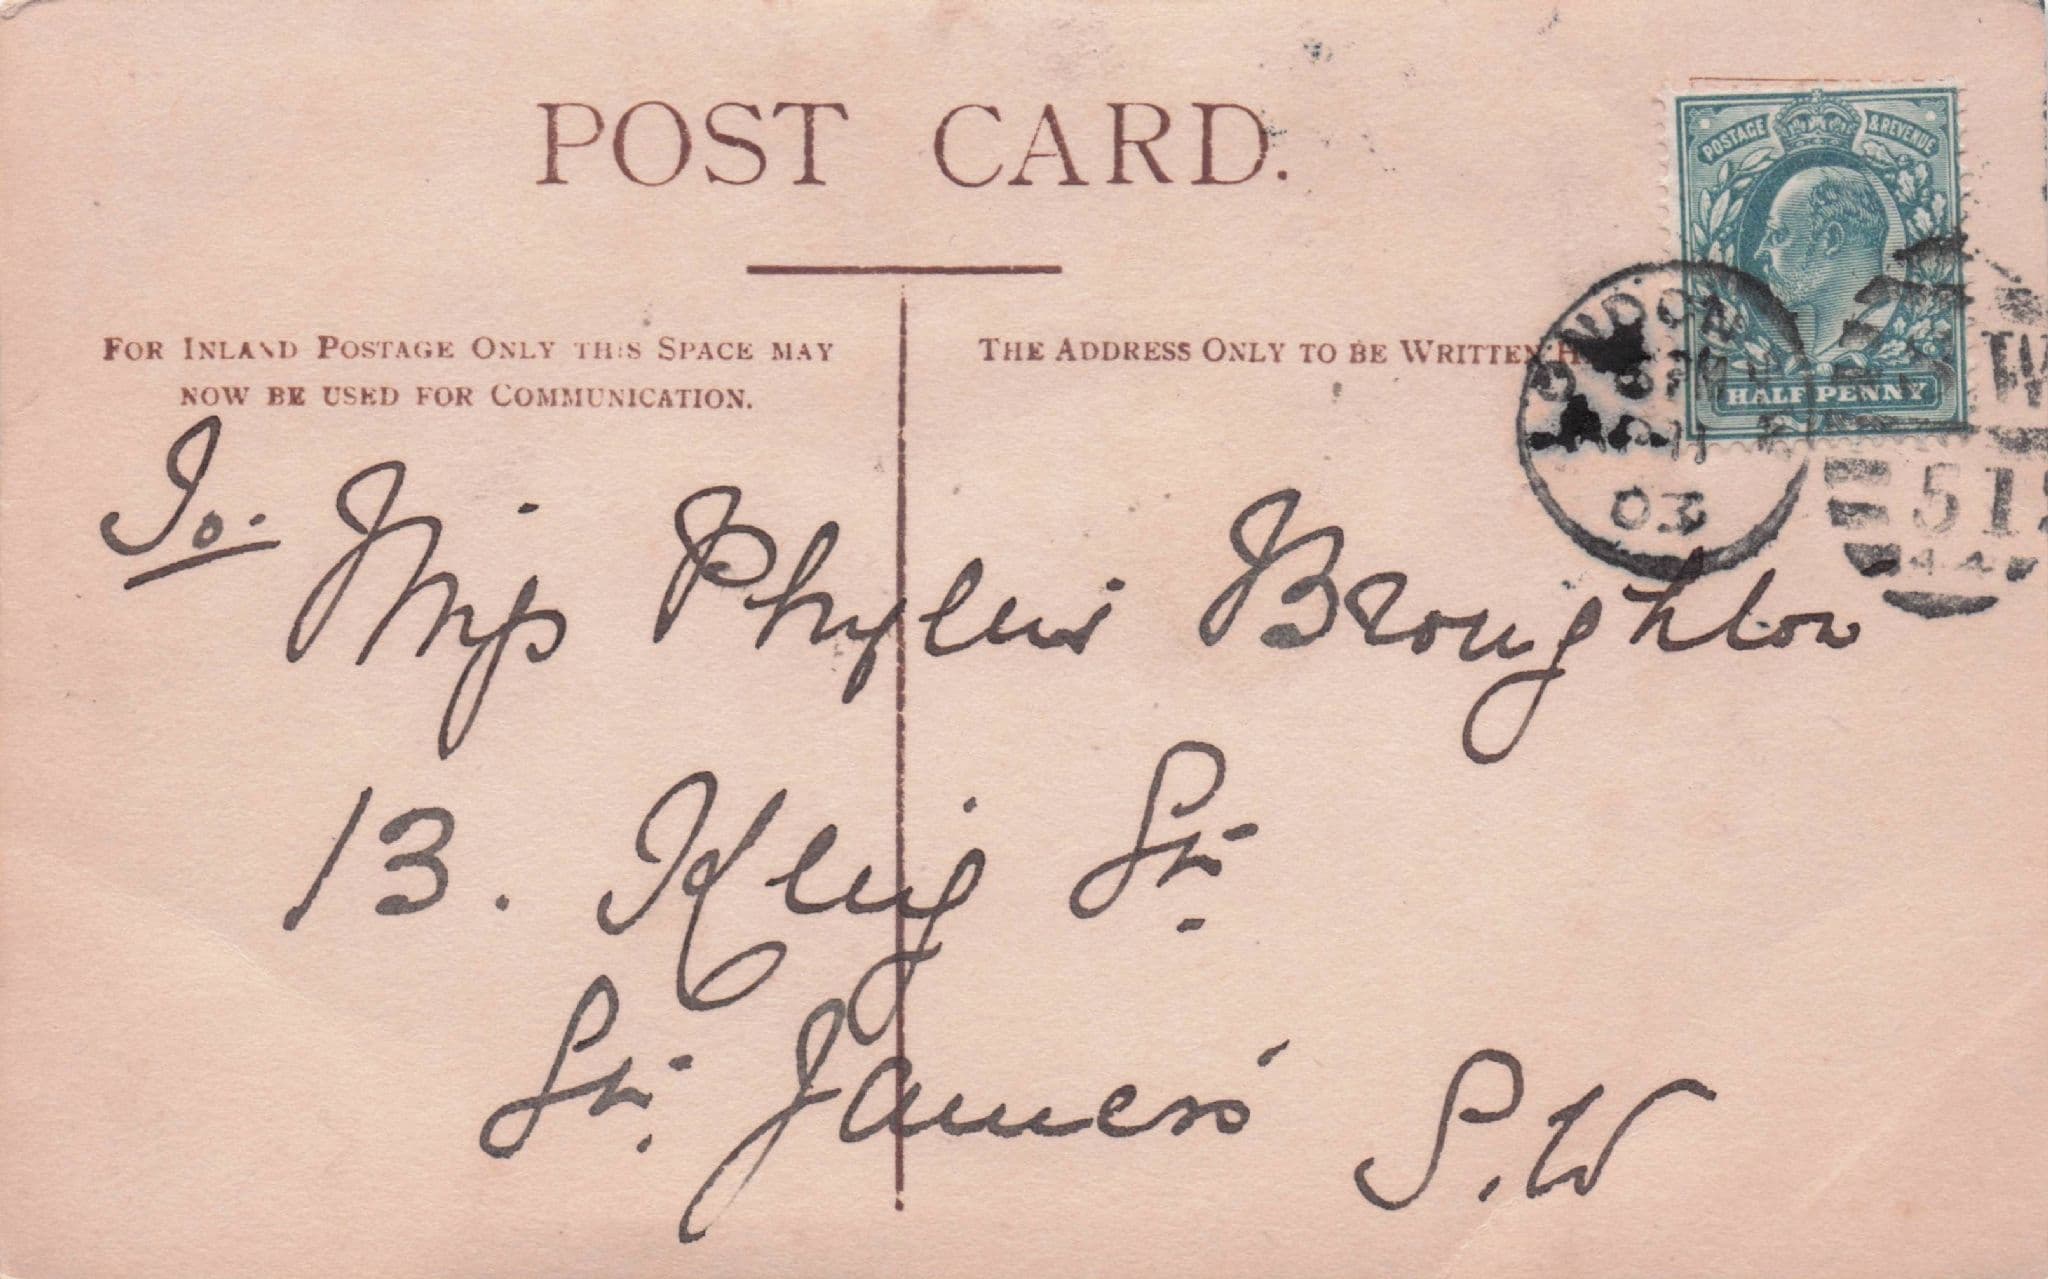 POST CARD.
POSTAGE & REVENUE
HALFPENNY
FOR INLAND POSTAGE ONLY THIS SPACE MAY
NOW BE USED FOR COMMUNICATION.
THE ADDRESS ONLY TO BE WRITTEN H
LONDON
03
51
To. Miss Phyllis Broughton
13. King St.
St. James' S.W